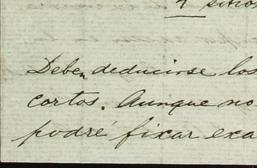 4 sitios
Deben deducirse los
cortos. Aunque no
podré fixar exa